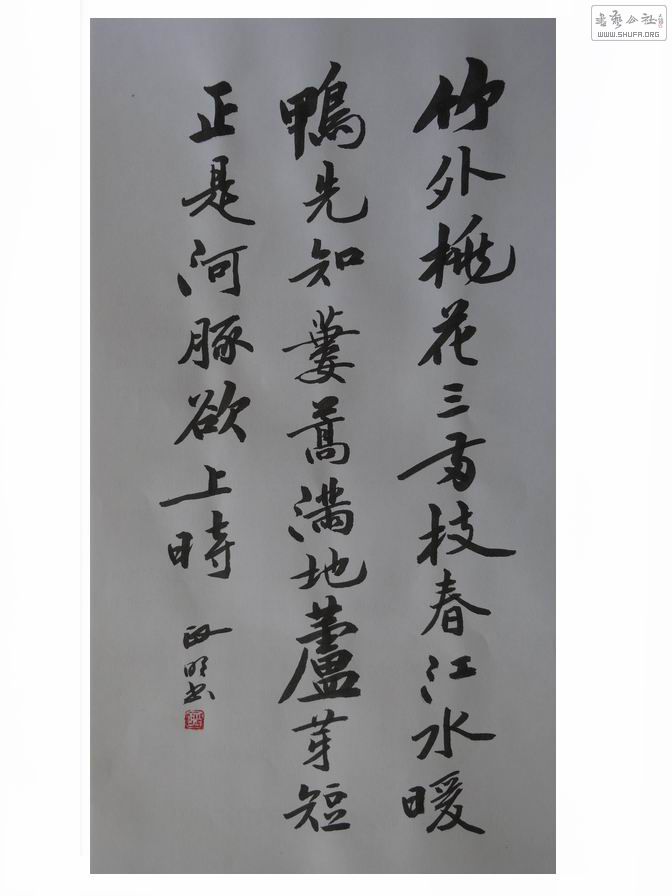 竹外桃花三两枝春江水暖
鴨先知蔞蒿满地蘆芽短
正是河豚欲上時
明书
书艺公社
WWW.SHUFA.ORG